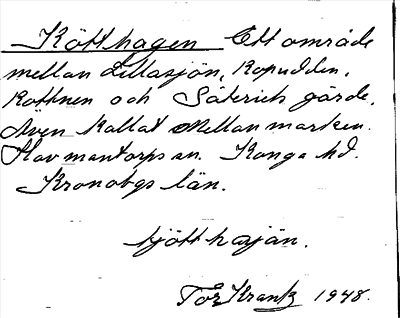 Kötthagen Ett område
mellan Lillasjön, Kopudden,
Kottnen och Säterich gärde.
Även kallat Mellanmarken.
Hovmantorps sn. Konga hd.
Kronobgs län.
tjötthajän.
Tor Krantz 1948.